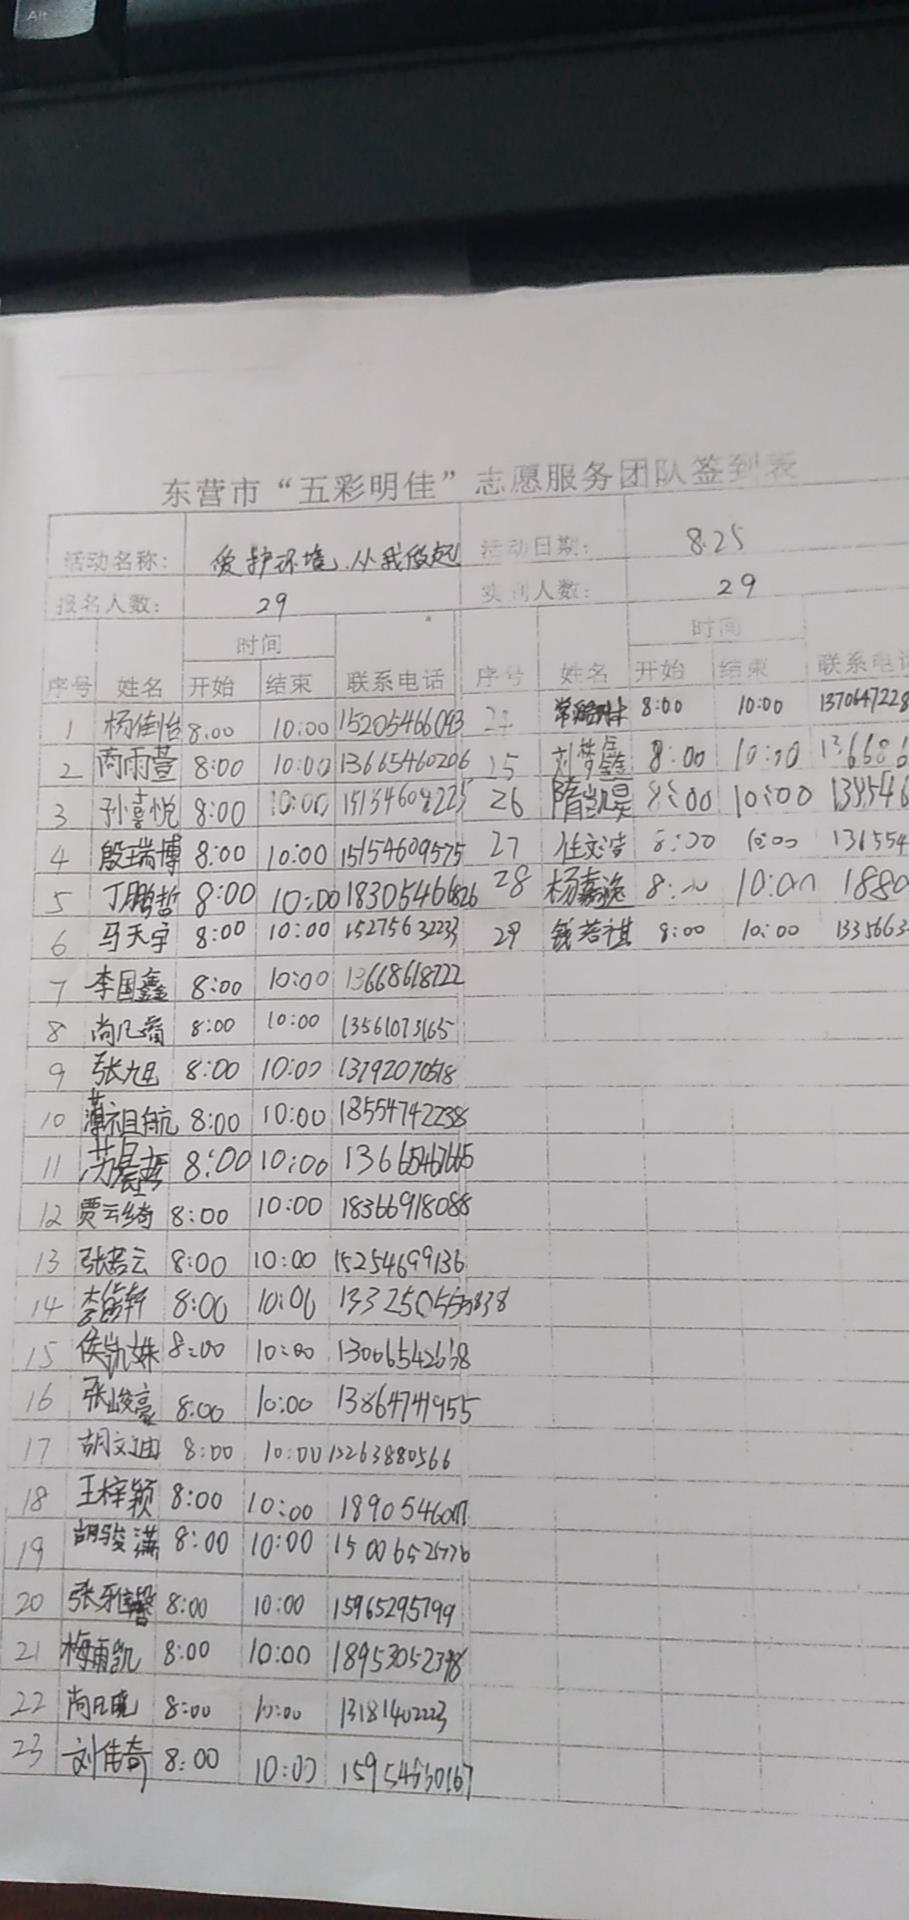 Alt
东营市“五彩明佳”志愿服务团队签到表
活动名称： 爱护环境、从我做起 活动日期： 8.25
报名人数： 29 实到人数： 29
时间 时间
序号 姓名 开始 结束 联系电话 序号 姓名 开始 结束 联系电话
1 杨佳怡 8:00 10:00 15205466093 24 8:00 10:00 1370647228
2 商雨萱 8:00 10:00 13665460206 25 刘梦鑫 8:00 10:00 136686
3 孙喜悦 8:00 10:00 26 隋凯昊 8:00 10:00
4 殷瑞博 8:00 10:00 15154609575 27 任文洁 8:00 10:00 131554
5 丁鹏哲 8:00 10:00 18305466826 28 杨嘉逸 8:00 10:00 1880
6 马天宇 8:00 10:00 15275632233 29 钱若祺 8:00 10:00 1335663
7 李国鑫 8:00 10:00 13668618722
8 尚凡 8:00 10:00 13561073165
9 张旭 8:00 10:00 13792070518
10 薄祖航 8:00 10:00 18554742238
11 苏晨哲 8:00 10:00 13665467665
12 贾云绮 8:00 10:00 18366918088
13 张若云 8:00 10:00 15254699136
14 8:00 10:00
15 侯凯姝 8:00 10:00 13006542638
16 张峻豪 8:00 10:00 13864741955
17 胡文迪 8:00 10:00 13263880566
18 王梓颖 8:00 10:00
19 胡骏潇 8:00 10:00
20 张雅馨 8:00 10:00 15965295799
21 梅甫凯 8:00 10:00 18953052398
22 尚凡晓 8:00 10:00 13181402223
23 刘伟奇 8:00 10:00